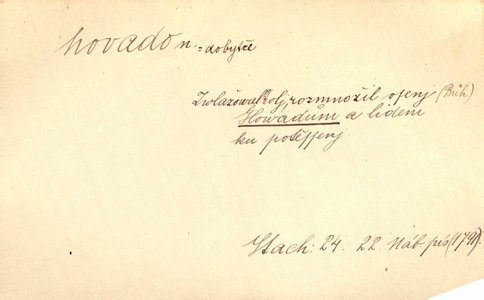 hovado n. = dobytče
rozmnožil osenj (Bůh)
Howadům a lidem
ku potěssenj
Stach: 24. 22. Náb. pís (1791).